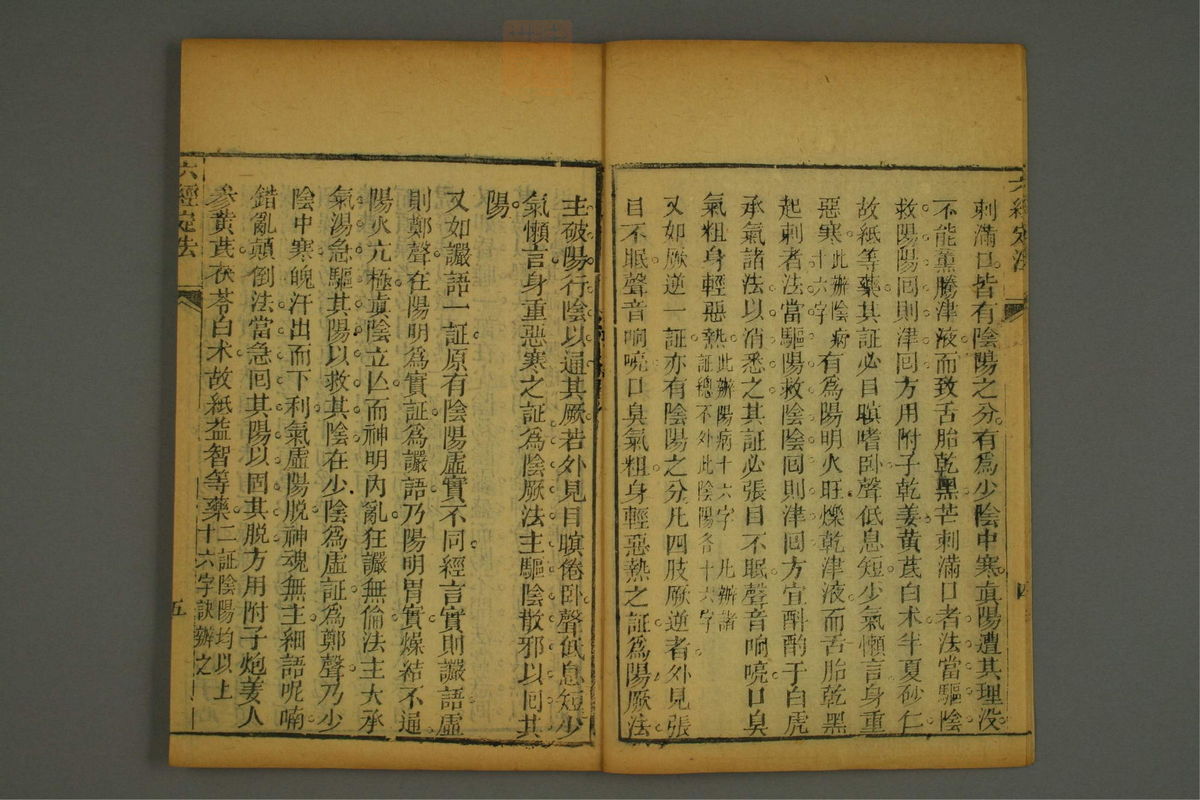 六經定法
四
刺滿口皆有陰陽之分有爲少陰中寒眞陽遭其埋没
不能薰騰津液而致舌胎乾黑芒刺滿口者法當驅陰
救陽陽囘則津囘方用附子乾姜黄茋白术半夏砂仁
故紙等藥其証必目瞋嗜卧聲低息短少氣懶言身重
惡寒此辦陰病十六字有爲陽明火旺爍乾津液而舌胎乾黑
起刺者法當驅陽救陰陰囘則津囘方宜酙酌于白虎
承氣諸法以消息之其証必張目不眠聲音响喨口臭
氣粗身輕惡熱此辦陽病十六字凡辦諸証總不外此陰陽各十六字
又如厥逆一証亦有陰陽之分凡四肢厥逆者外見張
目不眠聲音响喨口臭氣粗身輕惡熱之証爲陽厥法
主破陽行陰以通其厥若外見目瞋倦卧聲低息短少
氣懶言身重惡寒之証爲陰厥法主驅陰散邪以囘其
陽
又如讝語一証原有陰陽虛實不同經言實則讝語虛
則鄭聲在陽明爲實証爲讝語乃陽明胃實燥結不通
陽火亢極眞陰立亾而神明內亂狂讝無倫法主大承
氣湯急驅其陽以救其陰在少陰爲虛証爲鄭聲乃少
陰中寒魄汗出而下利氣虛陽脱神魂無主細語呢喃
錯亂顛倒法當急囘其陽以固其脱方用附子炮姜人
參黄茋茯苓白术故紙益智等藥二証陰陽均以上十六字訣辦之
六經定法
五